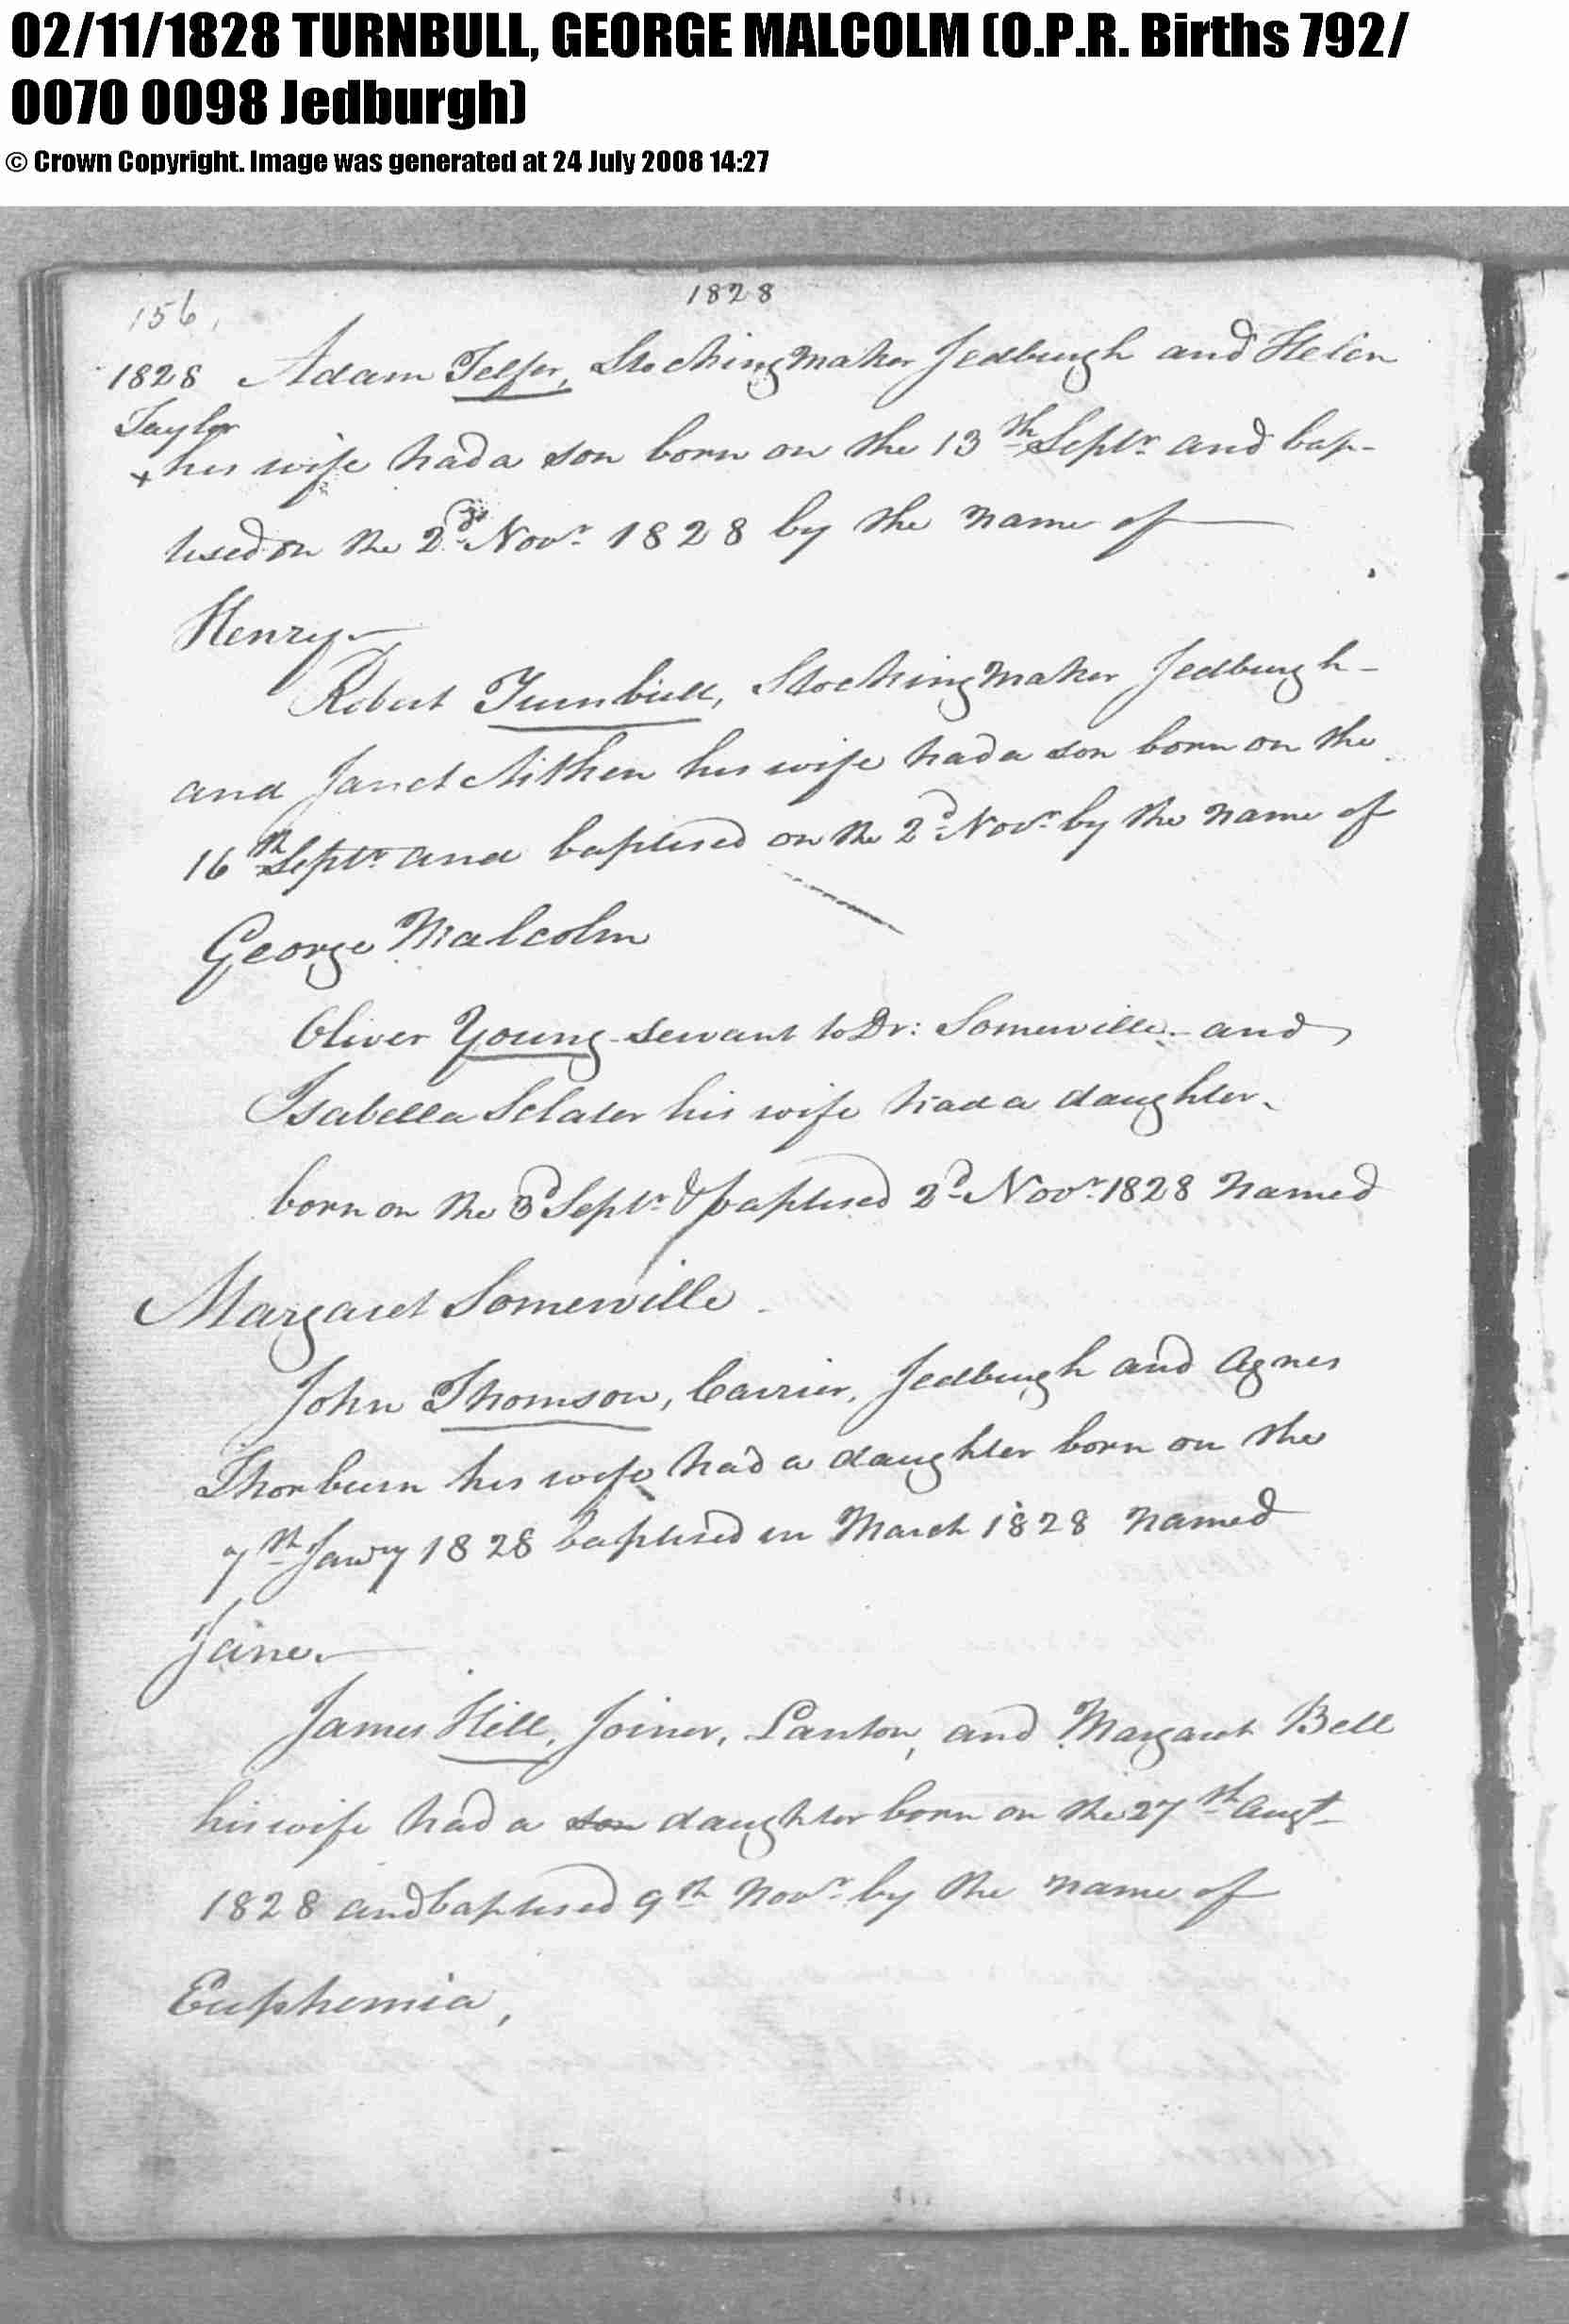 02/11/1828 TURNBULL, GEORGE MALCOLM (O.P.R. Births 792/
0070 0098 Jedburgh)
© Crown Copyright. Image was generated at 24 July 2008 14:27
156.
1828
1828 Adam Telfer, Stockingmaker Jedburgh and Helen
Taylor
x his wife had a son born on the 13th Septr. and bap-
tised on the 2d. Novr. 1828 by the name of
Henry
Robert Turnbull, Stockingmaker Jedburgh
and Janet Aitken his wife had a son born on the
16th Septr. and baptised on the 2d Novr. by the name of
George Malcolm
Oliver Young servant to Dr: Somerville and
Isabella Sclater his wife had a daughter
born on the 3d Septr. & baptised 2d Novr. 1828 named
Margaret Somerville
John Thomson, Carrier, Jedburgh and Agnes
Thorburn his wife had a daughter born on the
7th Jany 1828 baptised in March 1828 named
Jane
James Hill, Joiner, Lanton, and Margaret Bell
his wife had a son daughter born on the 27th Augt
1828 and baptised 9th Novr. by the name of
Euphemia,